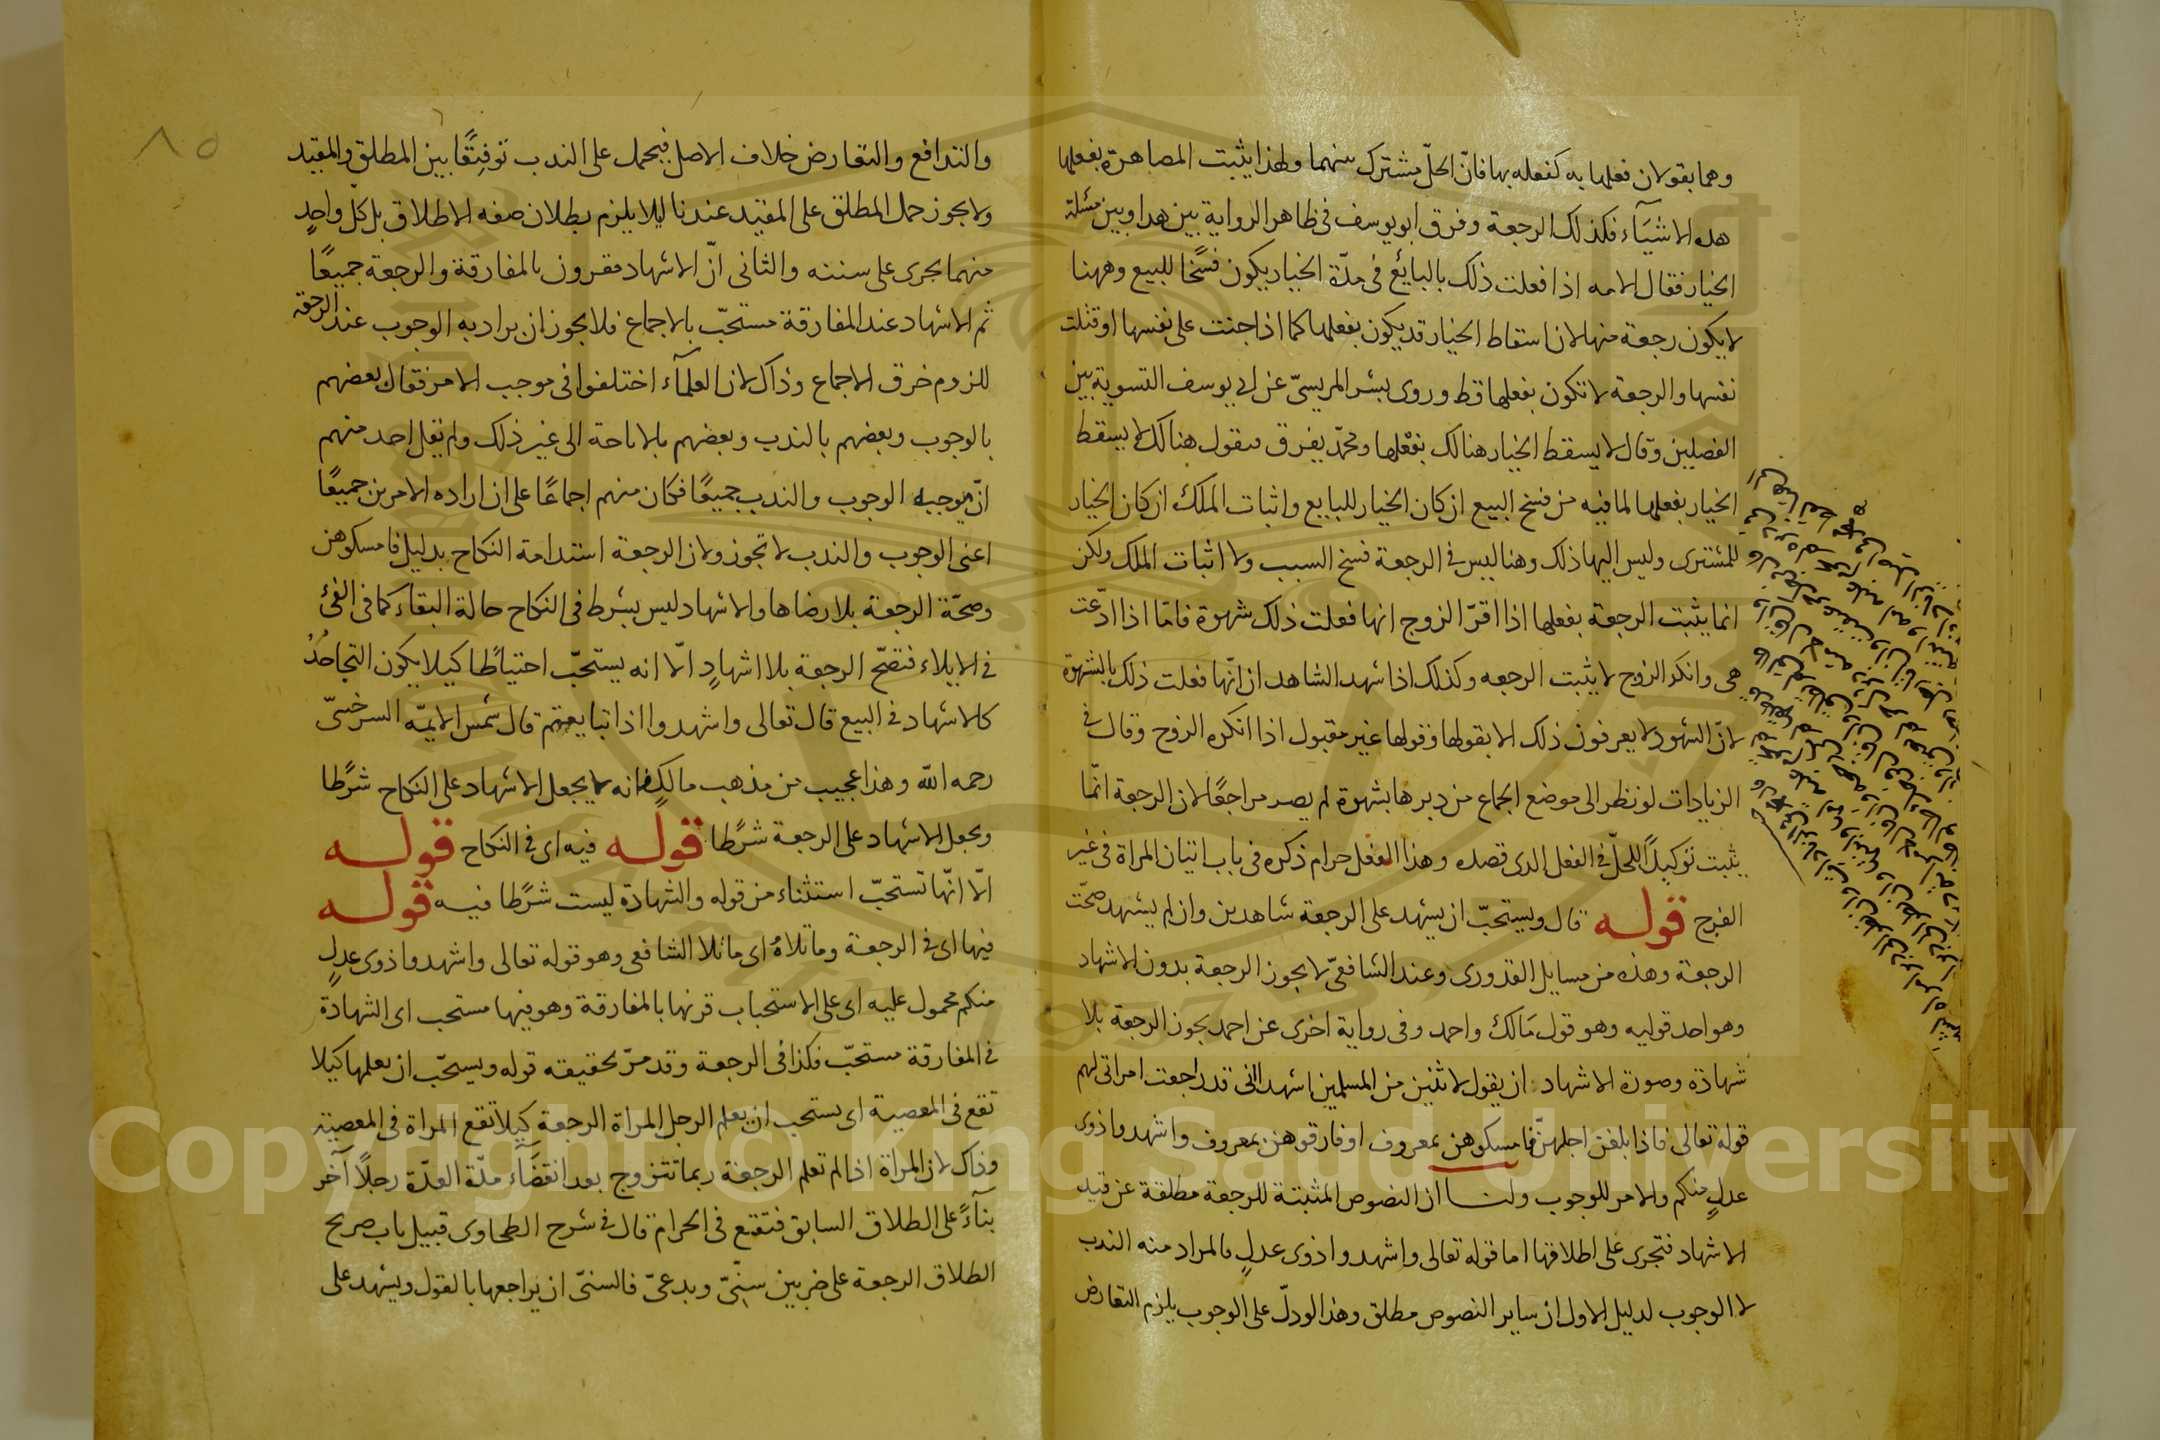 وهما يقولان فعلها به كفعله بها فانّ الحلّ مشترك بينهما ولهذا يثبت المصاهرة بفعلها
هذه الاشيآء فكذلك الرجعة وفرق ابو يوسف فى ظاهر الرواية بين هذا وبين مسئلة
الخيار فقال الامه اذا فعلت ذلك بالبائع فى مدّة الخيار يكون فسخًا للبيع وههنا
لا يكون رجعة منها لان اسقاط الخيار قد يكون بفعلها كما اذا جنت على نفسها او قتلت
نفسها والرجعة لا تكون بفعلها قط وروى بشر المريسىّ عن ابى يوسف التسوية بين
الفصلين وقال لا يسقط الخيار هنالك بفعْلها ومحمّد يفرق فيقول هنالك لا يسقط
الخيار بفعلها لما فيه من فسخ البيع ان كان الخيار للبايع واثبات الملك ان كان الخيار
للمشترى وليس اليها ذلك وهنا ليس فى الرجعة فسخ السبب ولا اثبات الملك ولكن
انما يثبت الرجعة بفعلها اذا اقرّ الزوج انها فعلت ذلك شهوة فامّا اذا ادّعت
هى وانكر الزوج لا يثبت الرجعه وكذلك اذا شهد الشاهد ان انّها فعلت ذلك بالشهوة
لانّ الشهود لا يعرفون ذلك الا بقولها وقولها غير مقبول اذا انكره الزوج وقال فى
الزيادات لو نظر الى موضع الجماع من دبرها بشهوة لم يصر مراجعًا لان الرجعة انّما
يثبت توكيدًا للحلّ فى الفعل الذى قصده وهذا الفعل حرام ذكره فى باب اتيان المراة فى غير
الفرج قوله قال ويستحبّ ان يشهد على الرجعة شاهدين وان لم يشهد صحّت
الرجعة وهذه من مسايل القدورى وعند الشافعىّ لا يجوز الرجعة بدون الاشهاد
وهو احد قوليه وهو قول مالك واحمد وفى رواية اخرى عن احمد يجوز الرجعة بلا
شهادة وصورة الاشهاد ان يقول لاثنين من المسلمين اشهدا انى قد راجعت امراتى لهم
قوله تعالى فاذا بلغن اجلهنّ فامسكوهن بمعروف او فارقوهن بمعروف واشهدوا ذوى
عدلٍ منكم والامر للوجوب ولنا ان النصوص المثبتة للرجعة مطلقة عن قيد
الاشهاد فتجرى على اطلاقها اما قوله تعالى واشهدوا ذوى عدلٍ فالمراد منه الندب
لا الوجوب لدليل الاول ان ساير النصوص مطلق وهذا لو دلّ على الوجوب يلزم التعارض
٨٥
والتدافع والتعارض خلاف الاصل فيحمل على الندب توفيقًا بين المطلق والمقيد
ولا يجوز حمل المطلق على المقيّد عندنا ليلا يلزم بطلان صفه الاطلاق بل كلّ واحدٍ
منهما يجرى على سننه والثانى انّ الاشهاد مقرون بالمفارقة والرجعة جميعًا
ثم الاشهاد عند المفارقة مستحبّ بالاجماع فلا يجوز ان يراد به الوجوب عند الرجعة
للزوم خرق الاجماع وذاك لان العلمآء اختلفوا فى موجب الامر فقال بعضهم
بالوجوب وبعضهم بالندب وبعضهم بالاباحة الى غير ذلك ولم يقل احد منهم
انّ موجبه الوجوب والندب جميعًا فكان منهم اجماعًا على ان اراده الامرين جميعًا
اعنى الوجوب والندب لا تجوز ولان الرجعة استدامة النكاح بدليل فامسكوهن
وصحّة الرجعة بلا رضاها والاشهاد ليس بشرط فى النكاح حالة البقاء كما فى الفىٔ
فى الايلاء فتصحّ الرجعة بلا اشهادٍ الّا انه يستحبّ احتياطًا كيلا يكون التجاحدُ
كالاشهاد فى البيع قال تعالى واشهدوا اذا تبايعتم قال شمس الايمّه السرخسىّ
رحمه الله وهذا عجيب من مذهب مالك فانه لا يجعل الاشهاد على النكاح شرطًا
ويجعل الاشهاد على الرجعة شرطا قوله فيه اى فى النكاح قوله
الّا انّها تستحبّ استثناء من قوله والشهادة ليست شرطًا فيه قوله
فيها اى فى الرجعة وما تلاهُ اى ما تلا الشافعى وهو قوله تعالى واشهدوا ذوى عدلٍ
منكم محمول عليه اى على الاستحباب قرنها بالمفارقة وهو فيها مستحب اى الشهادة
فى المفارقة مستحبّ فكذا فى الرجعة وقد مرّ تحقيقه قوله ويستحبّ ان يعلمها كيلا
تقع فى المعصية اى يستحب ان يعلم الرجل المراة الرجعة كيلا تقع المراة فى المعصية
وذاك لان المراة اذا لم تعلم الرجعة ربما تتزوج بعد انقضآء مدّة العدّة رجلًا آخر
بنآءً على الطلاق السابق فتقع فى الحرام قال فى شرح الطحاوى قبيل باب صريح
الطلاق الرجعة على ضربين سنّىّ وبدعىّ فالسنىّ ان يراجعها بالقول ويشهد على
Copyright © King Saud University